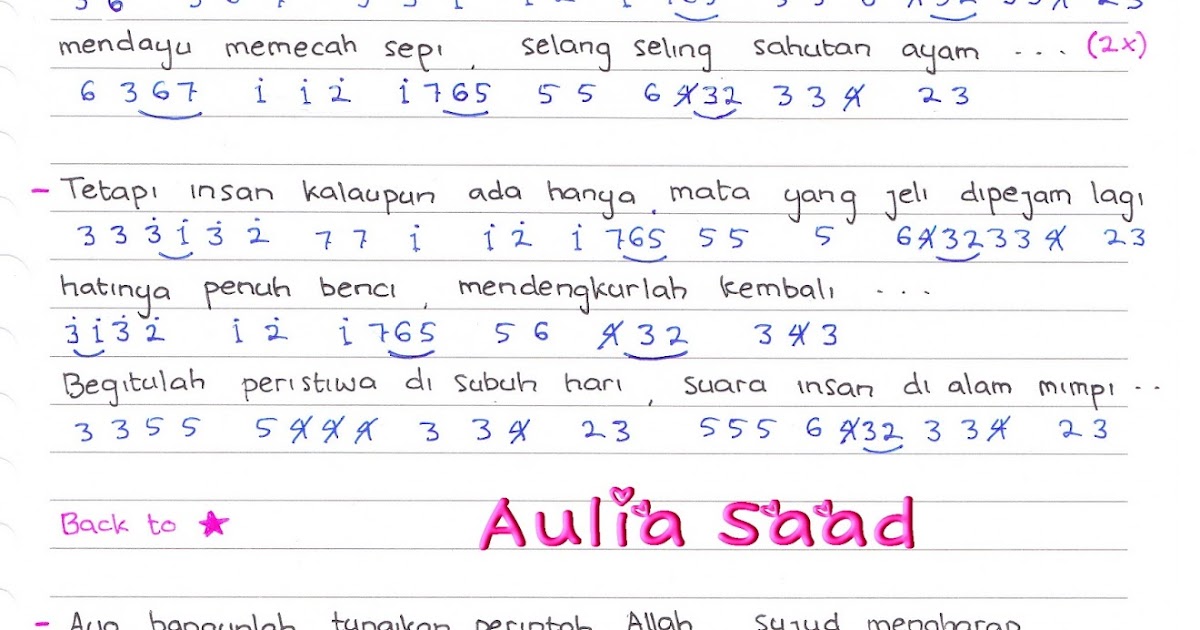 mendayu memecah sepi , selang seling sahutan ayam ... (2x)
6 3 6 7 i i 2̇ i 7 6 5 5 5 6 4̸ 3 2 3 3 4̸ 2 3
- Tetapi insan kalaupun ada hanya , mata yang jeli dipejam lagi
3 3 3̇ i 3̇ 2̇ 7 7 i i 2̇ i 7 6 5 5 5 5 6 4̸ 3 2 3 3 4̸ 2 3
hatinya penuh benci , mendengkurlah kembali ...
3̇ i 3̇ 2̇ i 2̇ i 7 6 5 5 6 4̸ 3 2 3 4̸ 3
Begitulah peristiwa di subuh hari , suara insan di alam mimpi ..
3 3 5 5 5 4̸ 4̸ 4̸ 3 3 4̸ 2 3 5 5 5 6 4̸ 3 2 3 3 4̸ 2 3
Back to ★ Aulia Saad
- Ayo bangunlah tunaikan perintah Allah sujud mengharap